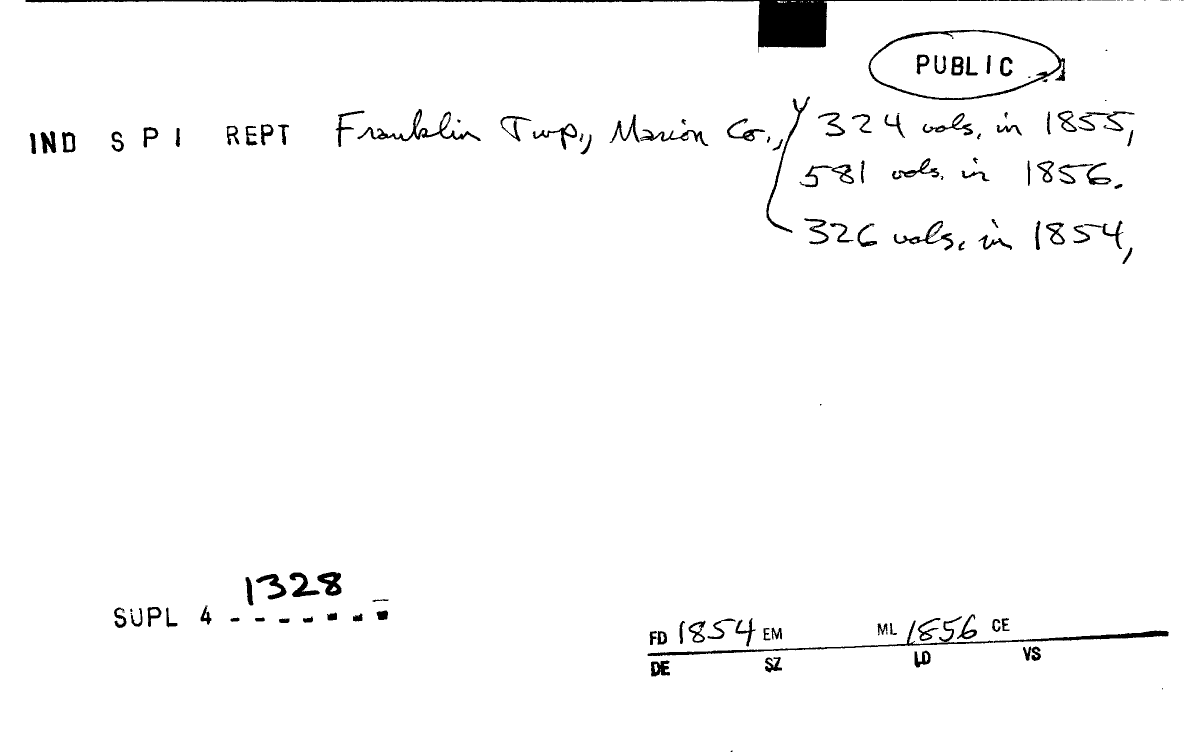 PUBLIC
IND S P I REPT Franklin Twp., Marion Co., 324 vols. in 1855,
581 vols. in 1856.
326 vols. in 1854,
1328
SUPL 4 - - - - - - -
FD 1854 EM ML 1856 CE
DE SZ LD VS